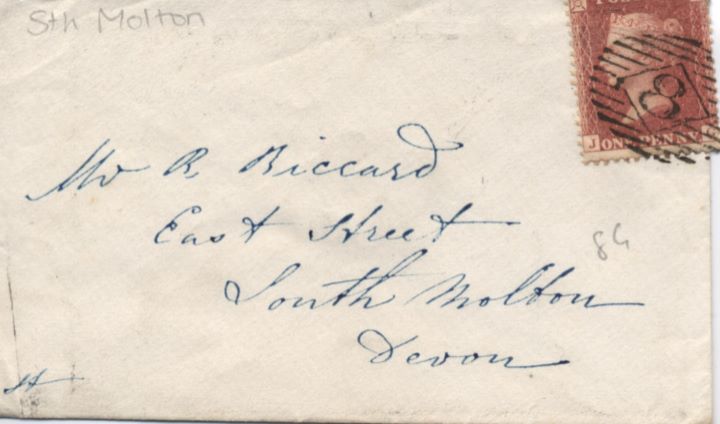 Sth Molton
Mr R. Riccard
East Street
South Molton
Devon
J ONE PENNY
8